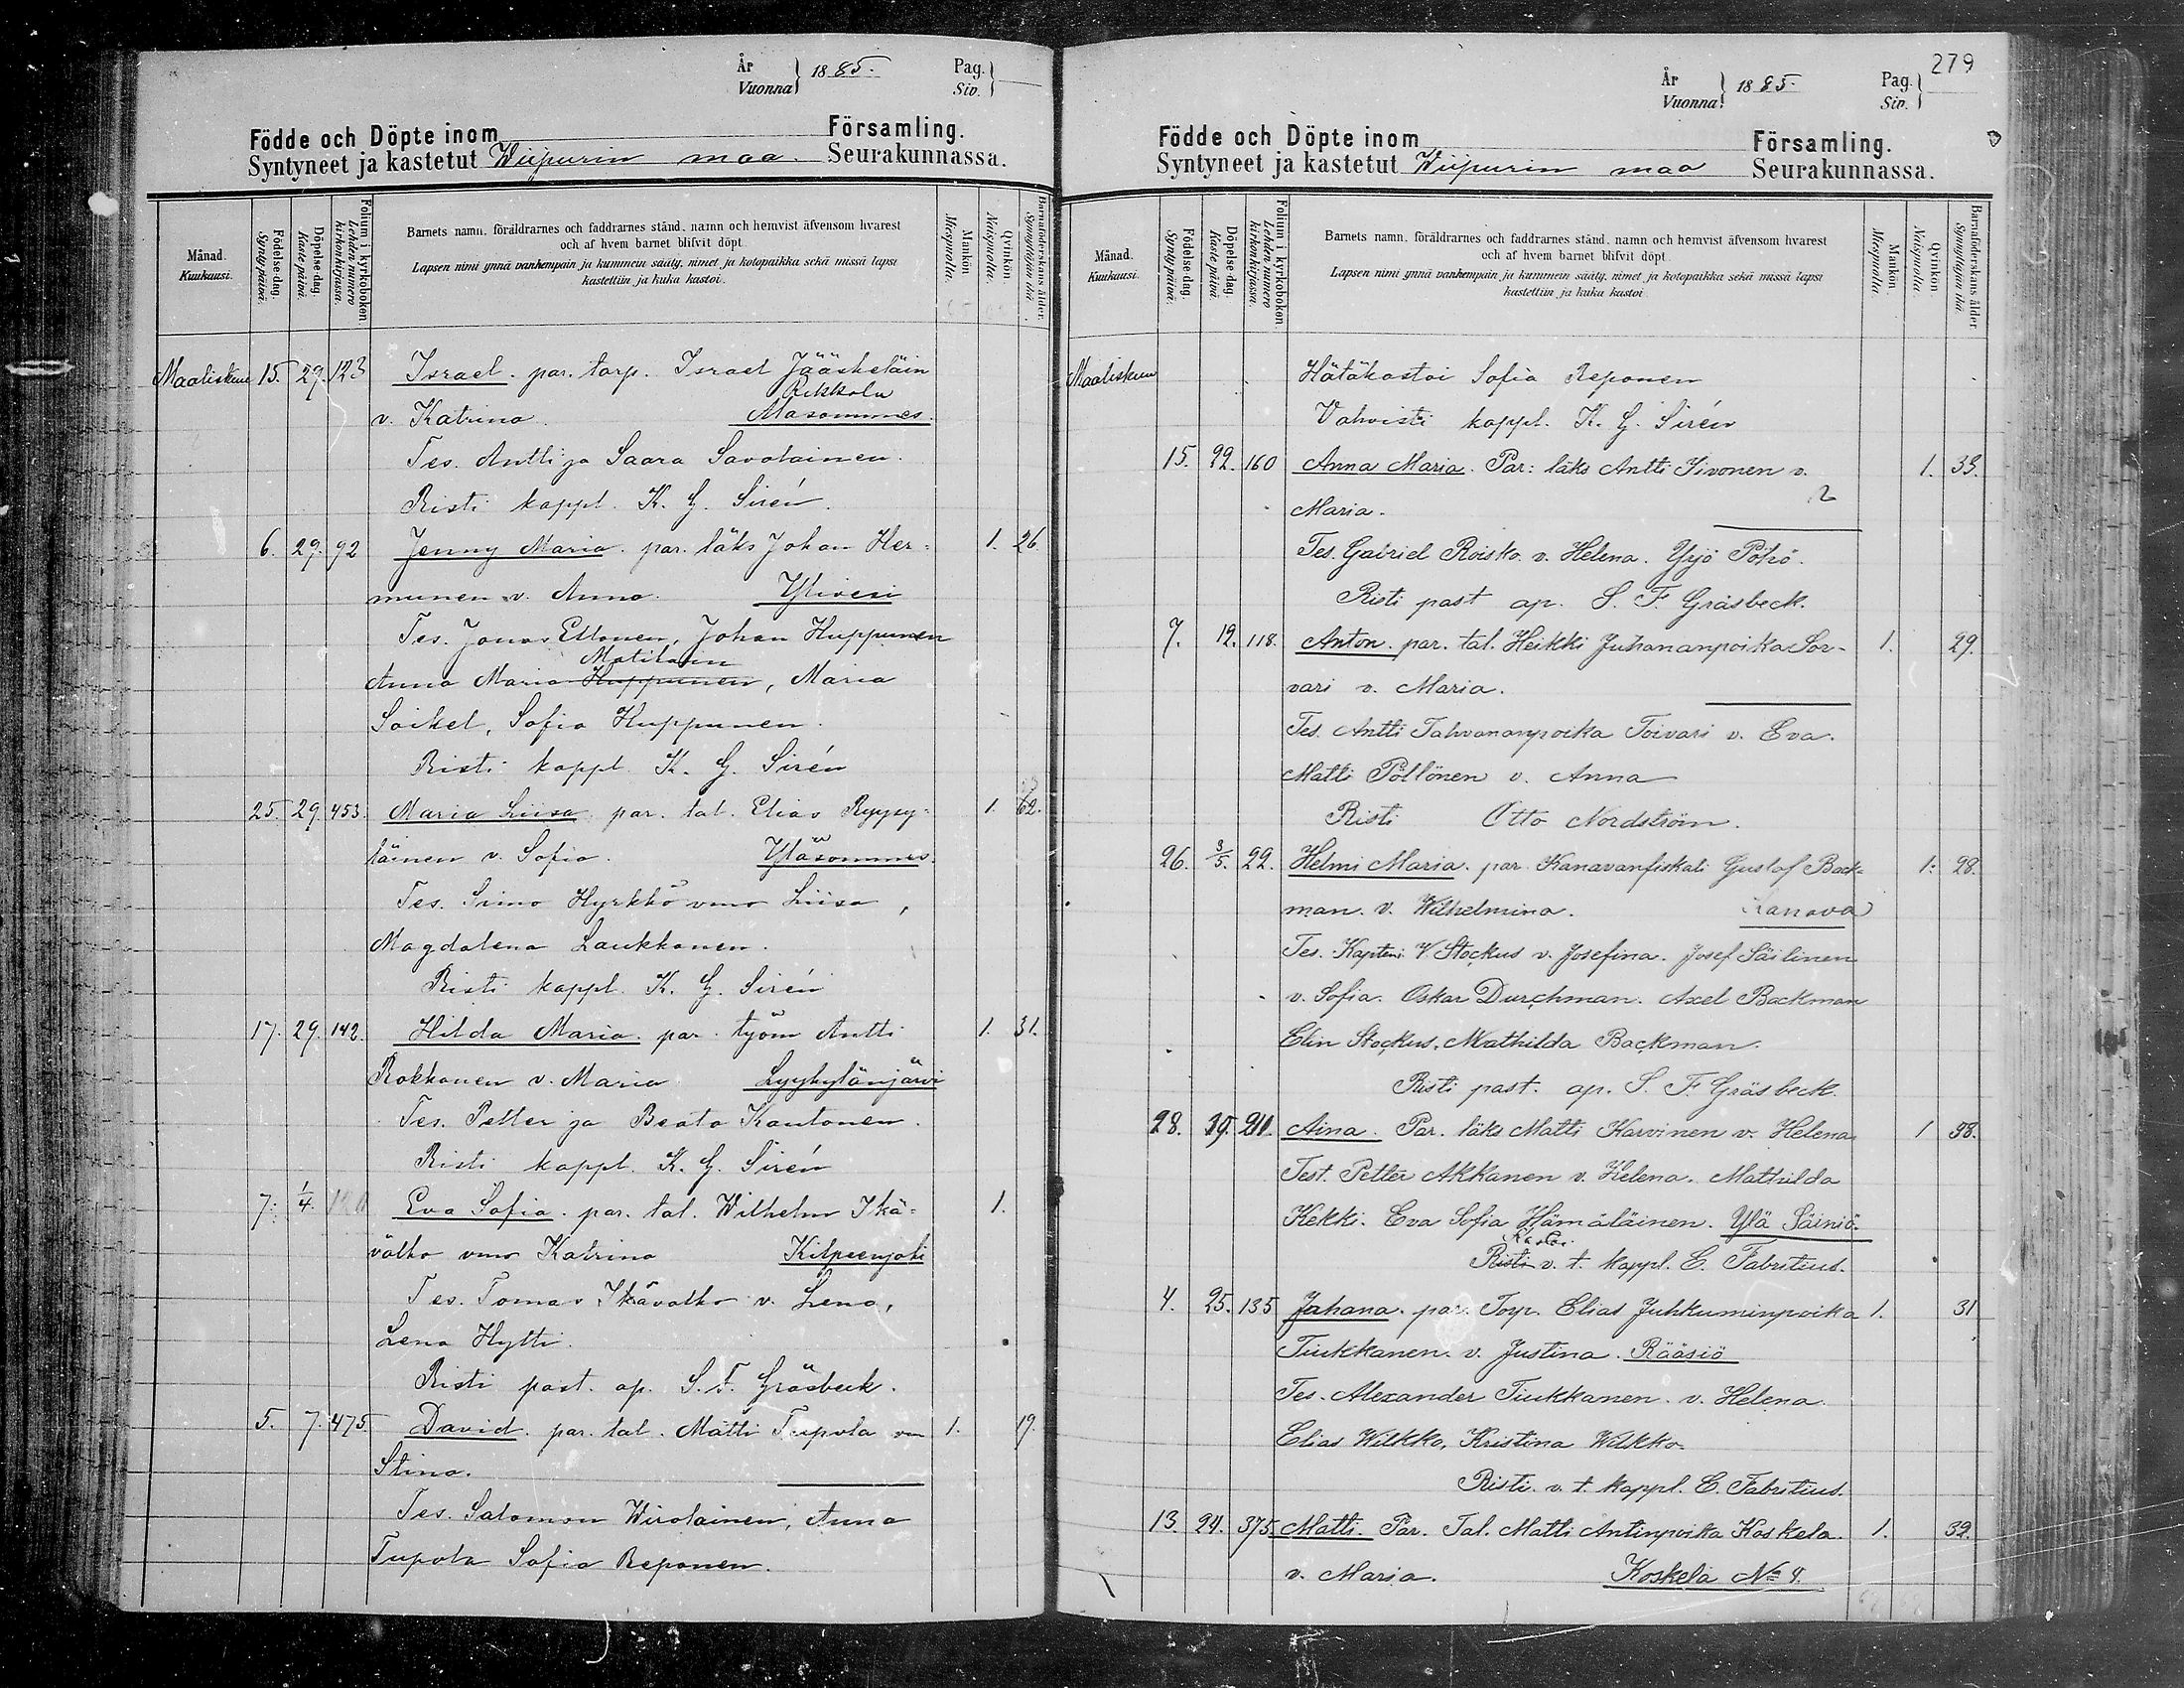 År
Vuonna } 1885.
Pag.
Siv.
Födde och Döpte inom Församling.
Syntyneet ja kastetut Wiipurin maa. Seurakunnassa.
Månad.
Kuukausi.
Födelse-dag.
Syntypäivä.
Döpelse-dag.
Kastepäivä.
Folium i kyrkoboken.
Lehden numero kirkonkirjassa.
Barnets namn, föräldrarnes och faddrarnes stånd, namn och hemvist äfvensom hvarest
och af hvem barnet blifvit döpt.
Lapsen nimi ynnä vanhempain ja kummein sääty, nimet ja kotopaikka sekä missä lapsi
kastettiin ja kuka kastoi.
Mankön.
Miespuolta.
Qvinkön.
Naispuolta.
Barnaföderskans ålder.
Synnyttäjän ikä.
Maaliskuu 15. 29. 123 Israel. par. torp. Israel Jääskeläin
Rekkola
v. Katrina. Alasommes.
Tes. Antti ja Saara Savolainen.
Risti kappl. K. G. Sirén.
6. 29. 92 Jenny Maria. par. läks Johan Her- 1. 26
munen v. Anna. Ylivesi
Tes. Jonas Ellonen, Johan Huppunen
Matilain
Anna Maria Huppunen, Maria
Soikel, Sofia Huppunen.
Risti kappl. K. G. Sirén
25. 29. 453. Maria Liisa par. tal. Elias Ryypy- 1. 62.
läinen v. Sofia. Yläsommes.
Tes. Simo Hyrkkö vmo Liisa,
Magdalena Laukkanen.
Risti kappl. K. G. Sirén
17. 29. 142. Hilda Maria. par. työm Antti 1. 31.
Rokkanen v. Maria Lyykylänjärvi
Tes. Petter ja Beata Kautonen.
Risti kappl. K. G. Sirén
7. 1/4. Eva Sofia. par. tal. Wilhelm Ikä- 1.
valko vmo Katrina Kilpeenjoki
Tes. Tomas Ikävalko v. Lena,
Lena Hytti.
Risti past. ap. S. F. Gräsbeck.
5. 7. 475. David. par. tal. Matti Tupola vm 1. 19.
Stina.
Tes. Salomon Wirolainen, Anna
Tupola Sofia Reponen.
279
År
Vuonna } 1885.
Pag.
Siv.
Födde och Döpte inom Församling.
Syntyneet ja kastetut Wiipurin maa Seurakunnassa.
Månad.
Kuukausi.
Födelse-dag.
Syntypäivä.
Döpelse-dag.
Kastepäivä.
Folium i kyrkoboken.
Lehden numero kirkonkirjassa.
Barnets namn, föräldrarnes och faddrarnes stånd, namn och hemvist äfvensom hvarest
och af hvem barnet blifvit döpt.
Lapsen nimi ynnä vanhempain ja kummein sääty, nimet ja kotopaikka sekä missä lapsi
kastettiin ja kuka kastoi
Mankön.
Miespuolta
Qvinkön.
Naispuolta.
Barnaföderskans ålder.
Synnyttäjän ikä
Maaliskuu Hätäkastoi Sofia Reponen
Vahvisti kappl. K. G. Sirén
15. 22. 160 Anna Maria. Par: läks Antti Iivonen v. 1. 33.
Maria. 2
Tes. Gabriel Roisko. v. Helena. Yrjö Pötrö.
Risti past ap. S. F. Gräsbeck.
7. 12. 118. Anton. par. tal. Heikki Juhananpoika Sor- 1. 29.
vari v. Maria.
Tes. Antti Tahvananpoika Toivari v. Eva.
Matti Pöllönen v. Anna
Risti Otto Nordström.
26. 3/5. 22. Helmi Maria. par. Kanavanfiskali Gustaf Back- 1: 28.
man. v. Wilhelmina. Kanava
Tes. Kapteni V. Stockus v. Josefina. Josef Säilinen
v. Sofia. Oskar Durchman. Axel Backman
Elin Stockus. Mathilda Backman.
Risti past. ap. S. F. Gräsbeck.
28. 29. 211. Aina. Par. läks Matti Karvinen v. Helena. 1 38.
Test. Petter Akkanen v. Helena. Mathilda
Kekki. Eva Sofia Hämäläinen. Ylä Säiniö.
Kastoi
Risti v. t. kappl. E. Fabritius.
4. 25. 135 Juhana. par. Torp. Elias Juhkuminpoika 1. 31
Tiukkanen. v. Justina. Rääsiö
Tes. Alexander Tiukkanen. v. Helena.
Elias Wilkko, Kristina Wilkko.
Risti. v. t. kappl. E. Fabritius.
13. 24. 375 Matti. Par. Tal. Matti Antinpoika Koskela. 1. 32.
v. Maria. Koskela No 4.